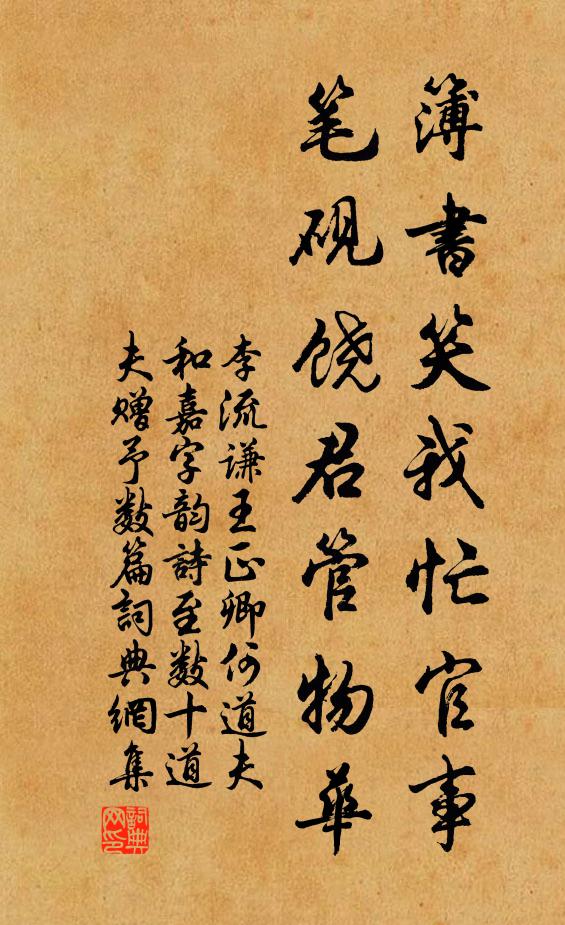 簿書笑我忙官事
笔硯饶君管物華
李流谦王正卿何道夫
和嘉字韵詩至数十道
夫赠予数篇詞典網集
詞典网印